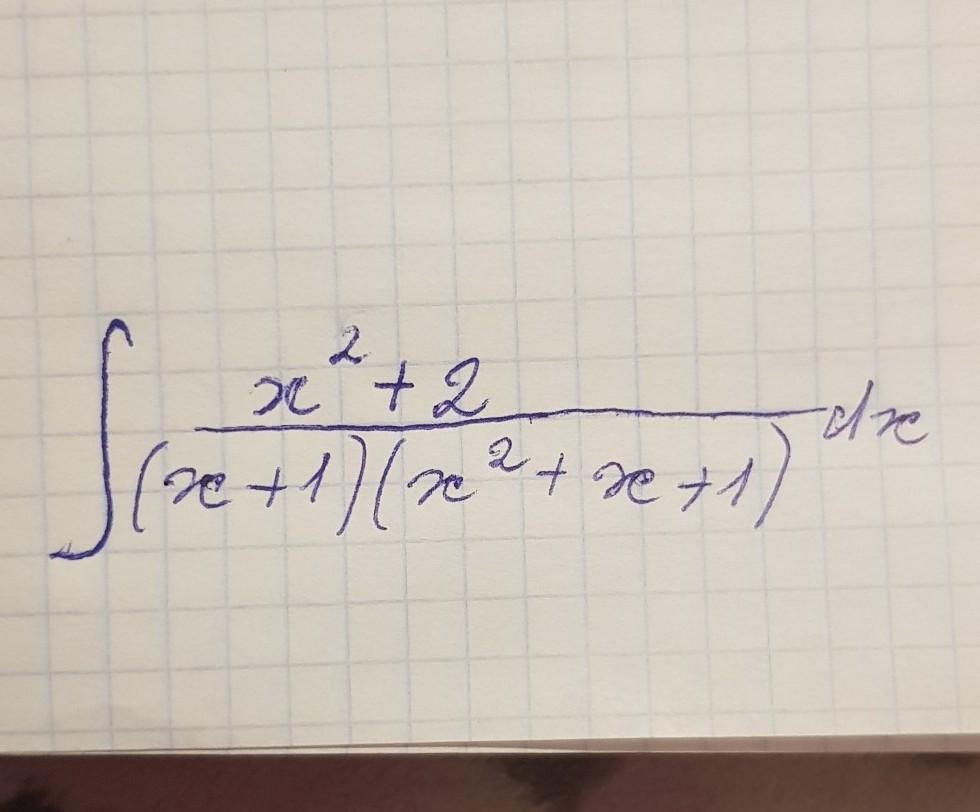 ∫ (x² + 2) / ((x + 1)(x² + x + 1)) dx